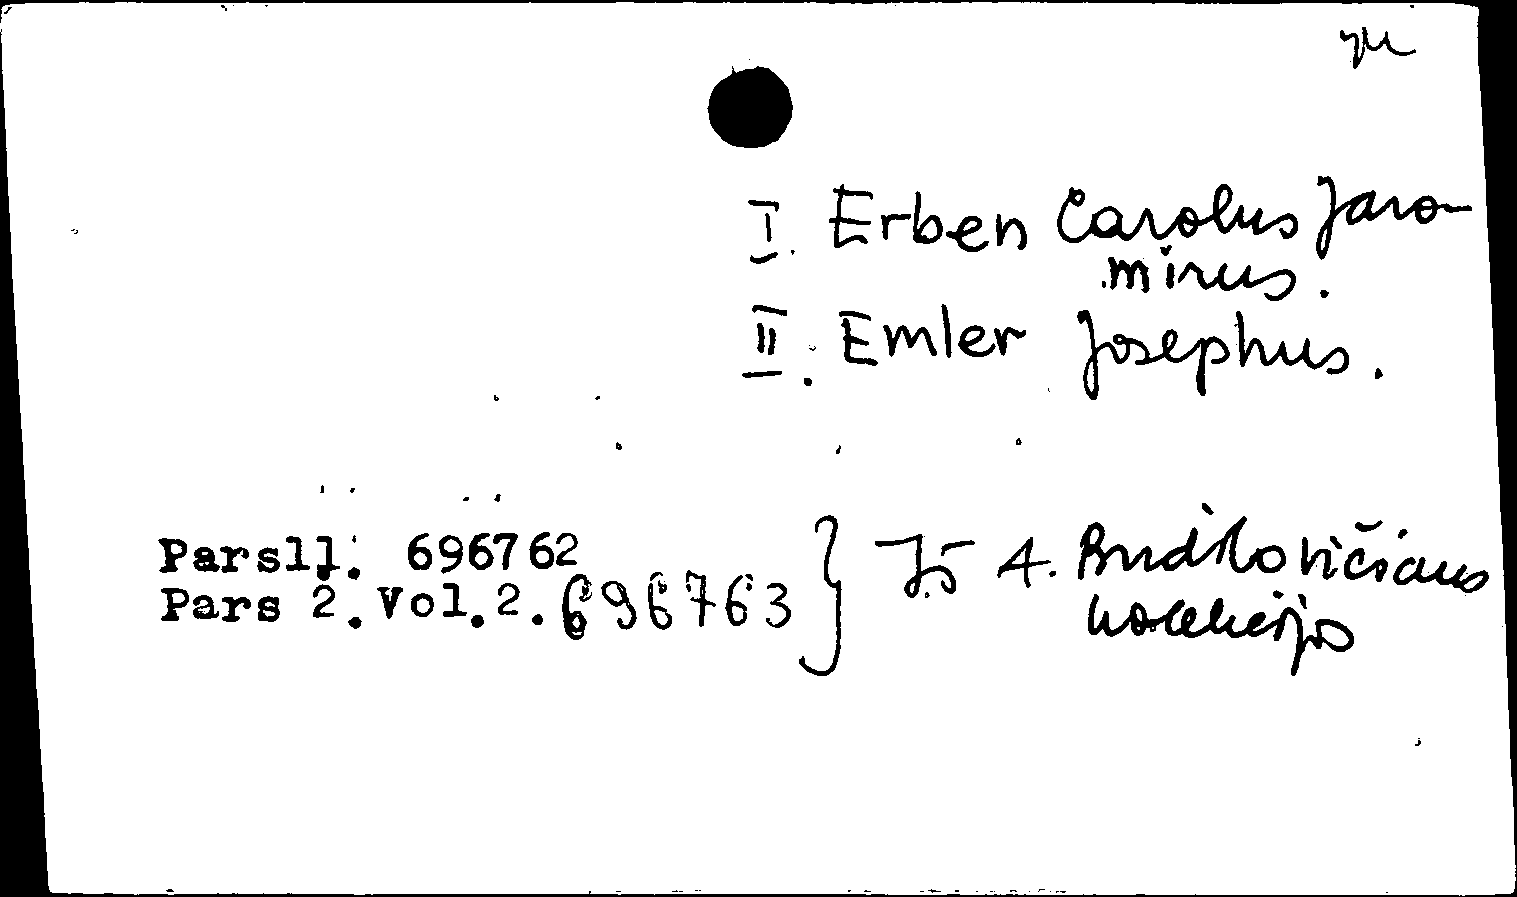 I. Erben Carolus Jaro-
mirus.
II. Emler Josephus.
Pars 1. 696762
Pars 2. Vol. 2. 696763
Iš A. Budilovičiaus
kolekcijos